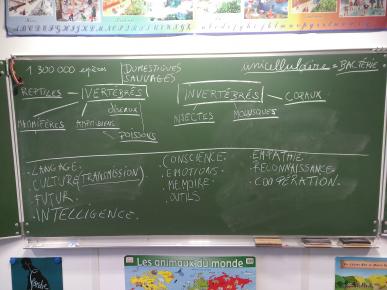 1 300 000 espèces
DOMESTIQUES
SAUVAGES
unicellulaire = BACTÉRIE
REPTILES
VERTÉBRÉS
INVERTÉBRÉS
CORAUX
OISEAUX
MAMMIFÈRES
AMPHIBIENS
POISSONS
INSECTES
MOLLUSQUES
. LANGAGE.
. CULTURE (TRANSMISSION)
. FUTUR.
. INTELLIGENCE.
. CONSCIENCE.
. EMOTIONS.
. MEMOIRE.
. OUTILS
. EMPATHIE.
. RECONNAISSANCE.
. COOPÉRATION.
Les animaux du monde